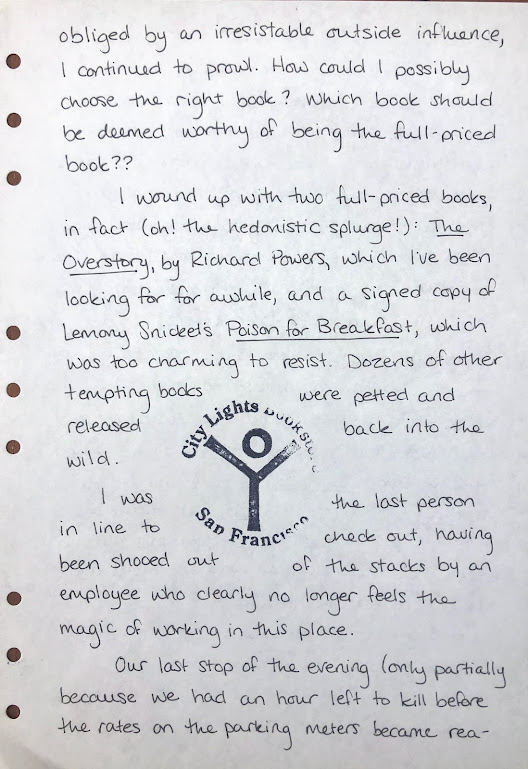 obliged by an irresistable outside influence,
I continued to prowl. How could I possibly
choose the right book? Which book should
be deemed worthy of being the full-priced
book??
I wound up with two full-priced books,
in fact (oh! the hedonistic splurge!): The
Overstory, by Richard Powers, which I've been
looking for for awhile, and a signed copy of
Lemony Snicket's Poison for Breakfast, which
was too charming to resist. Dozens of other
tempting books were petted and
released back into the
wild.
City Lights Bookstore
San Francisco
I was the last person
in line to check out, having
been shooed out of the stacks by an
employee who clearly no longer feels the
magic of working in this place.
Our last stop of the evening (only partially
because we had an hour left to kill before
the rates on the parking meters became rea-